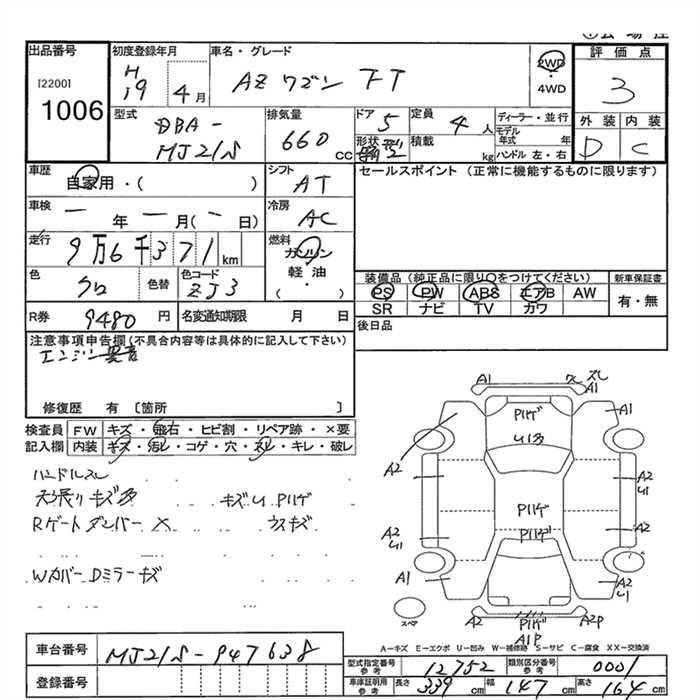 出品番号
[2200]
1006
初度登録年月
H19 4月
車名・グレード
AZワゴン FT
2WD
4WD
評価点
3
外装 内装
D C
型式
DBA-
MJ21S
排気量
660 cc
ドア 5
形状
定員 4人
積載 kg
ディーラー・並行
モデル年式 年
ハンドル 左・右
車歴
自家用・( )
シフト
AT
セールスポイント (正常に機能するものに限ります)
車検
一年 一月(一日)
冷房
AC
走行
9万6千371km
燃料
ガソリン
軽油
( )
色
クロ
色替
色コード
ZJ3
装備品(純正品に限り○をつけてください)
PS PW ABS エアB AW
SR ナビ TV カワ
新車保証書
有・無
R券 9480円
名変通知期限 月 日
後日品
注意事項申告欄(不具合内容等は具体的に記入して下さい)
エンジン異音
修復歴 有 〔箇所 〕
検査員 FW キズ・飛石・ヒビ割・リペア跡・×要
記入欄 内装 キズ・汚レ・コゲ・穴・スレ・キレ・破レ
ハンドルスレ
天張りキズ多 キズU P11ゲ
Rゲートダンパー× ウスキズ
Wカバー Dミラーキズ
A1 ズレ
A1
P11ゲ
U13
A1
A2
A2
U1
P11ゲ
A2
U1
A2
P11ゲ
A1
A2
U1
スペア
A2
P11ゲ
A1P
A2P
A－キズ E－エクボ U－凹み W－補修跡 S－サビ C－腐食 XX－交換済
車台番号
MJ21S-947638
登録番号
型式指定番号 参考 12752
類別区分番号 参考 0001
車庫証明用 参考 長さ 339cm 幅 147cm 高さ 164cm